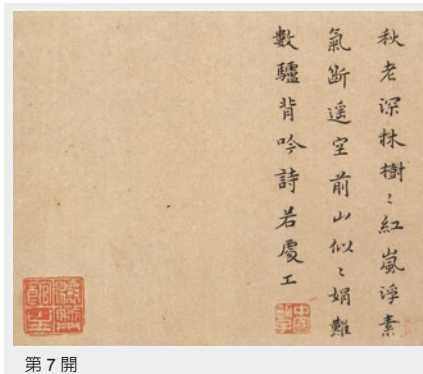 秋老深林樹〻紅嵐浮素
氣斷遥空前山似〻娟難
數驢背吟詩若處工
第 7 開